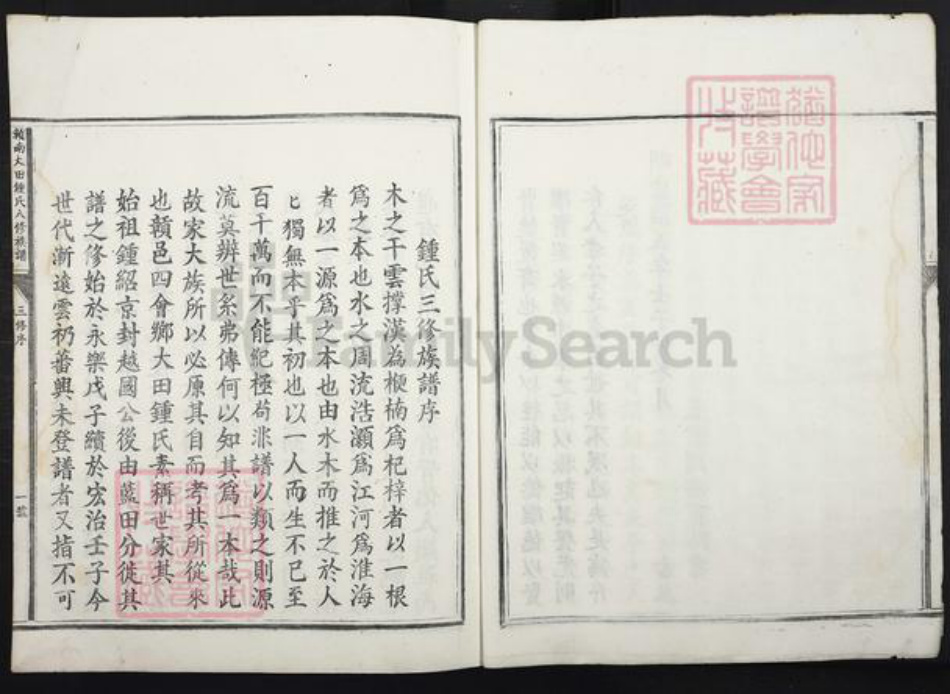 鍾氏三修族譜序
木之干雲撑漢為梗楠爲杞梓者以一根
爲之本也水之周流浩灝爲江河爲淮海
者以一源爲之本也由水木而推之於人
獨無本乎其初也以一人而生不已至
百千萬而不能紀極苟非譜以類之則源
流莫辨世系弗傳何以知其爲一本哉此
故家大族所以必原其自而考其所從來
也贛邑四會鄉大田鍾氏素稱世家其
始祖鍾紹京封越國公後由藍田分徙其
譜之修始於永樂戊子續於宏治壬子今
世代漸遠雲礽蕃興未登譜者又指不可
贛南大田鍾氏八修族譜
三修序
一
譜學會
藏
FamilySearch